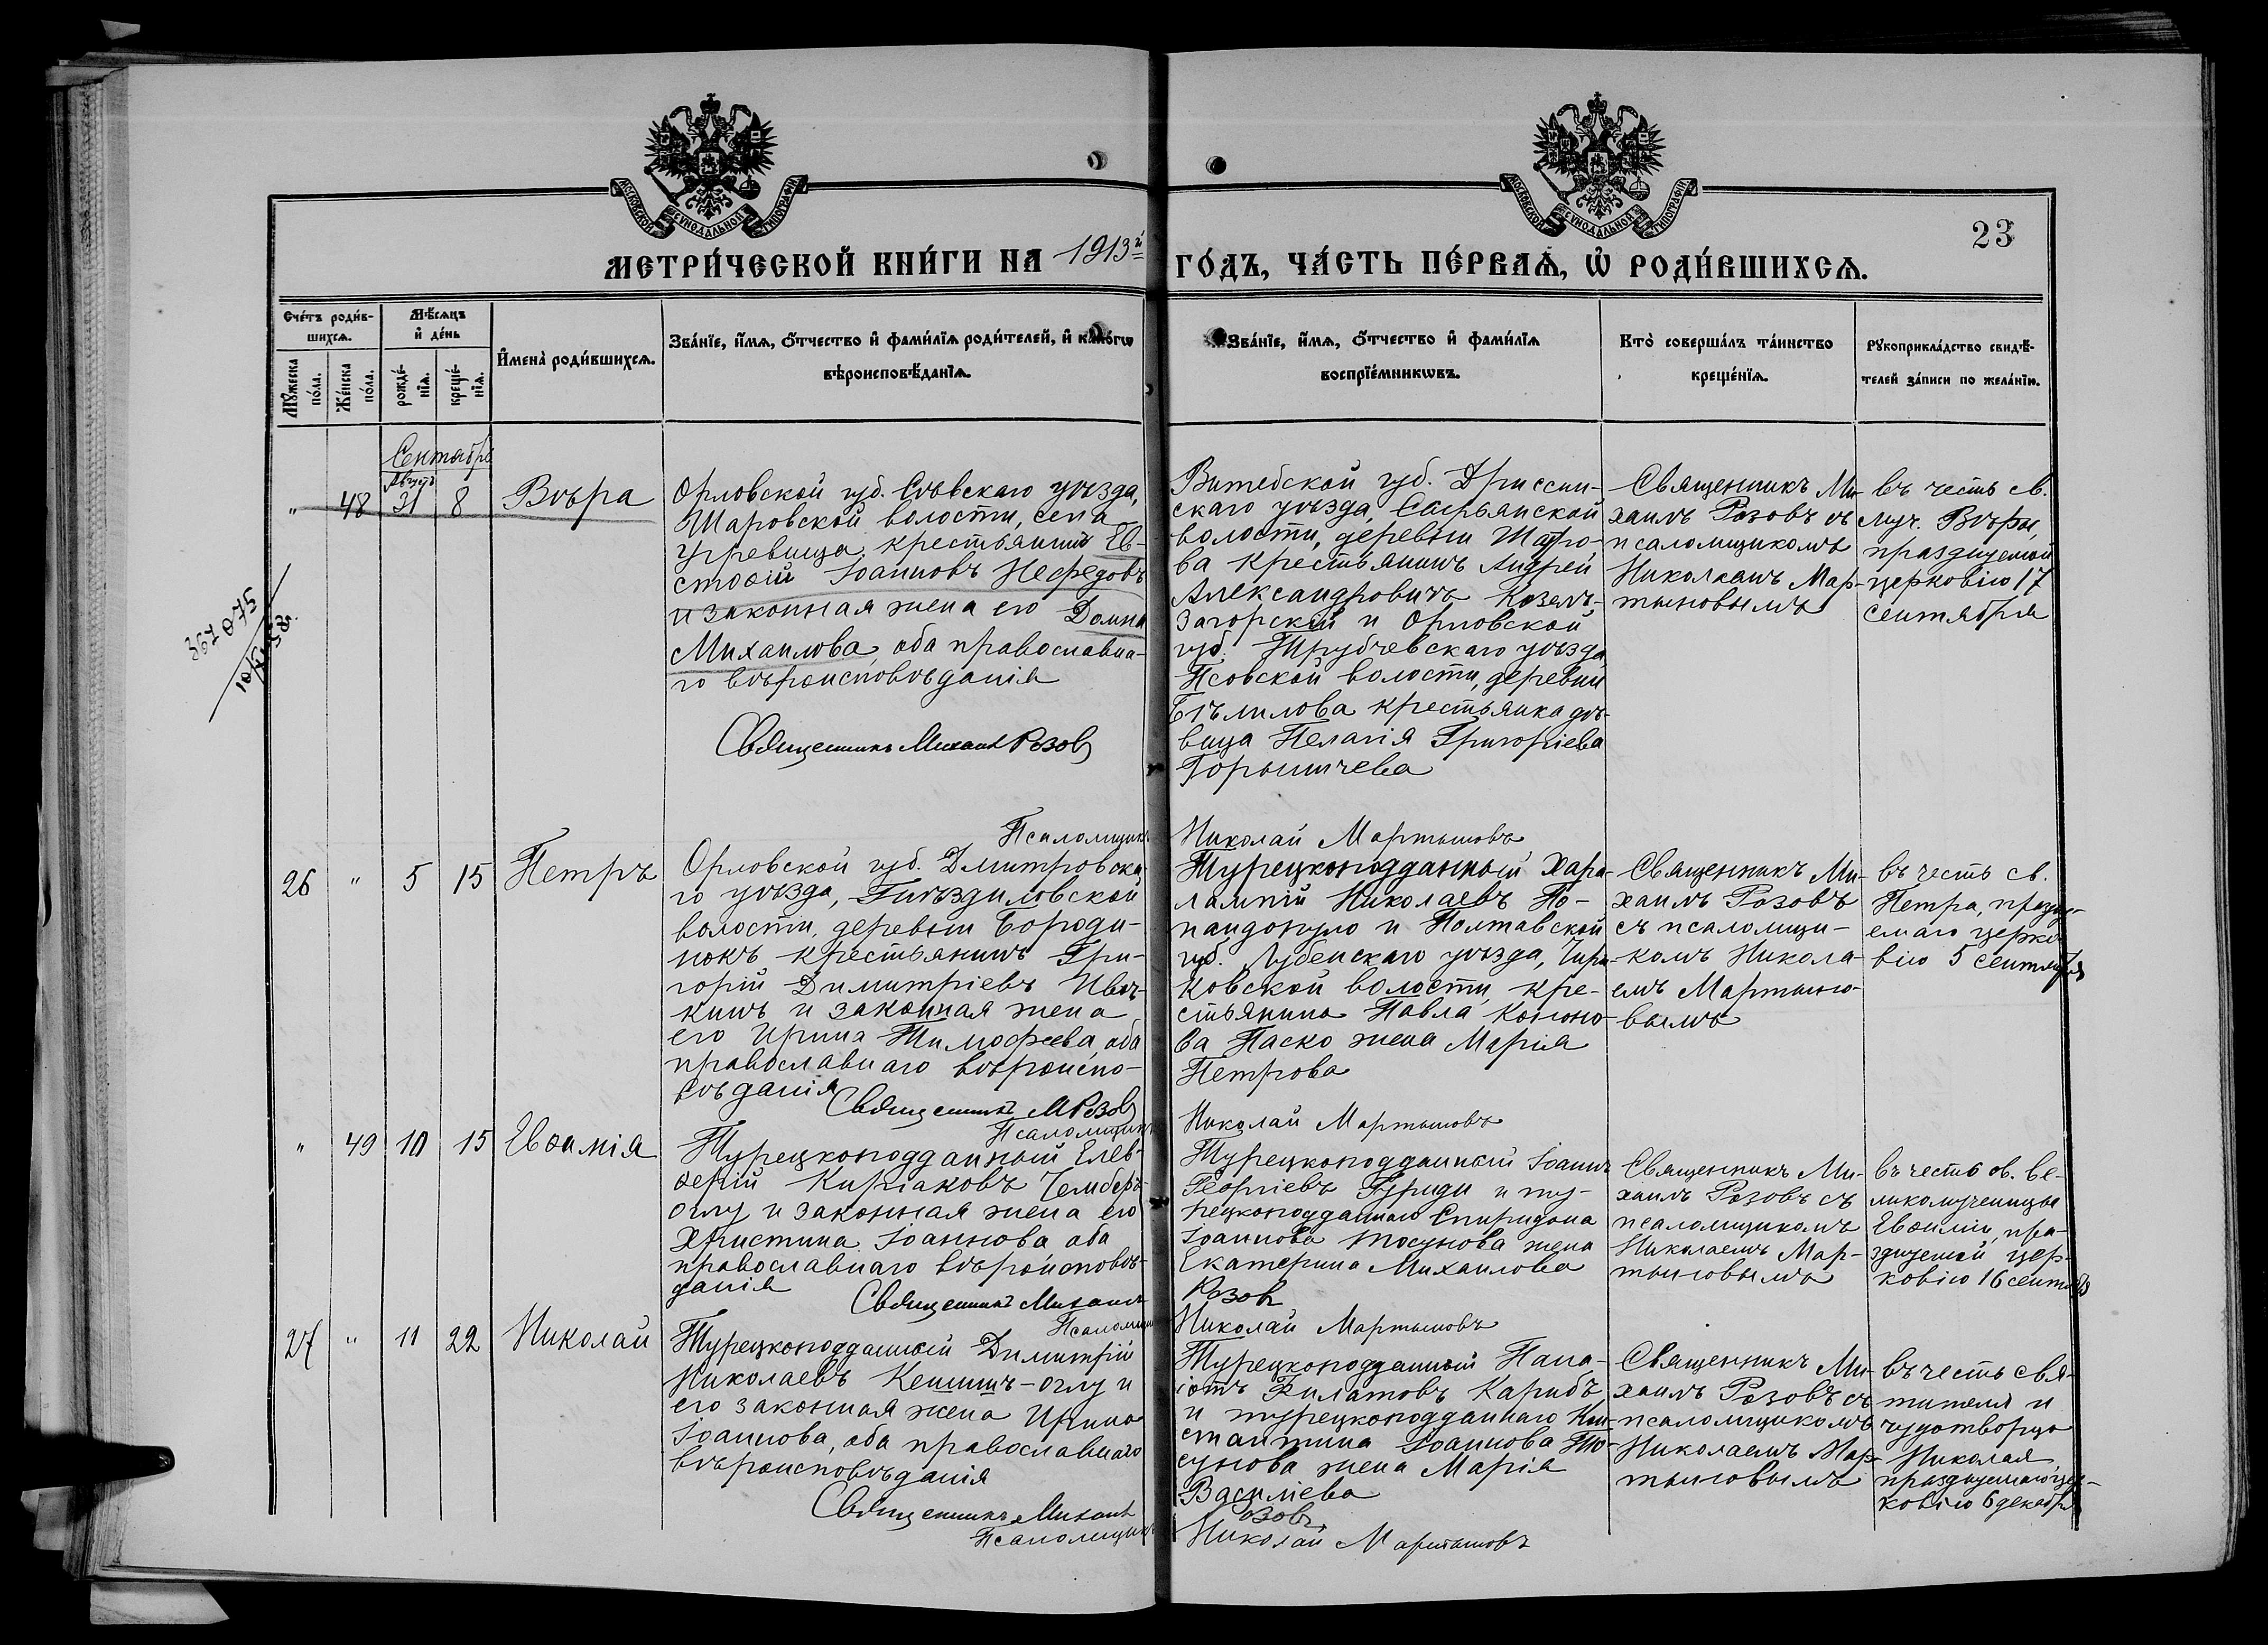 МОСКОВСКОЙ СѴНОДАЛЬНОЙ ТИПОГРАФІИ
МОСКОВСКОЙ СѴНОДАЛЬНОЙ ТИПОГРАФІИ
23
МЕТРИ́ЧЕСКОЙ КНИ́ГИ НА 1913й ГО́ДЪ, ЧА́СТЬ ПЕ́РВАѦ, Ѡ҆ РОДИ́ВШИХСѦ.
Сче́тъ роди́в-
шихсѧ.
Мꙋ́жеска по́ла.
Же́нска по́ла.
Мѣ́сѧцъ
и҆ де́нь
рожде́-
нїѧ.
креще́-
нїѧ.
И҆мена̀ роди́вшихсѧ.
Зва́нїе, и҆́мѧ, ѻ҆́тчество и҆ фами́лїѧ роди́телей, и҆ како́гѡ
вѣроисповѣ́данїѧ.
Зва́нїе, и҆́мѧ, ѻ҆́тчество и҆ фами́лїѧ
воспрїе́мникѡвъ.
Кто̀ соверша́лъ та́инство
креще́нїѧ.
Рꙋкоприкла́дство свидѣ́-
телей за́писи по жела́нїю.
Сентябрь
Августъ
" 48 31 8 Вѣра
Орловской губ. Сѣвскаго уѣзда,
Шаровской волости, села
Угревища, крестьянинъ Ев-
стафій Іоанновъ Нефедовъ
и законная жена его Домна
Михаилова, оба православна-
го вѣроисповѣданія
Священникъ Михаилъ Розовъ
Псаломщикъ Николай Мартыновъ
Витебской губ. Дриссин-
скаго уѣзда, Сарьянской
волости, деревни
ва крестьянинъ Андрей
Александровичъ Козелъ-
Загорскій и Орловской
губ. Трубчевскаго уѣзда,
Псовской волости, деревни
крестьянка дѣ-
вица Пелагія Григоріева
Священникъ Ми-
хаилъ Розовъ съ
псаломщикомъ
Николаемъ Мар-
тыновымъ
въ честь св.
муч. Вѣры,
празднуемой
церковію 17
сентября
26 " 5 15 Петръ
Орловской губ. Дмитровска-
го уѣзда, Гнѣздиловской
волости, деревни Бороди-
нокъ крестьянинъ Гри-
горій Димитріевъ Ивоч-
кинъ и законная жена
его Ирина Тимофеева, оба
православнаго вѣроиспо-
вѣданія
Священникъ М Розовъ
Псаломщикъ Николай Мартыновъ
Турецкоподданный Хара-
лампій Николаевъ По-
пандопуло и Полтавской
губ. Лубенскаго уѣзда,
ковской волости, кре-
стьянина Павла
ва Паско жена Марія
Петрова
Священникъ Ми-
хаилъ Розовъ
съ псаломщи-
комъ Никола-
емъ Мартыно-
вымъ
въ честь св.
Петра, праздну-
емаго церко-
вію 5 сентября
" 49 10 15 Евѳимія
Турецкоподданный Елев-
ѳерій Киріаковъ Чемберъ-
оглу и законная жена его
Христина Іоаннова, оба
православнаго вѣроисповѣ-
данія
Священникъ Михаилъ Розовъ
Псаломщикъ Николай Мартыновъ
Турецкоподданный Іоаннъ
Георгіевъ и ту-
рецкоподданнаго Спиридона
Іоаннова Тосунова жена
Екатерина Михаилова
Священникъ Ми-
хаилъ Розовъ съ
псаломщикомъ
Николаемъ Мар-
тыновымъ
въ честь св. ве-
ликомученицы
Евѳиміи, пра-
зднуемой цер-
ковію 16 сентября
27 " 11 22 Николай
Турецкоподданный Димитрій
Николаевъ Кешишъ-оглу и
его законная жена Ирина
Іоаннова, оба православнаго
вѣроисповѣданія
Священникъ Михаилъ Розовъ
Псаломщикъ Николай Мартыновъ
Турецкоподданный Пана-
іотъ Филатовъ Карибъ
и турецкоподданнаго Кон-
стантина Іоаннова То-
сунова жена Марія
Василіева
Священникъ Ми-
хаилъ Розовъ съ
псаломщикомъ
Николаемъ Мар-
тыновымъ
въ честь свя-
тителя и
чудотворца
Николая,
празднуемаго цер-
ковію 6 декабря